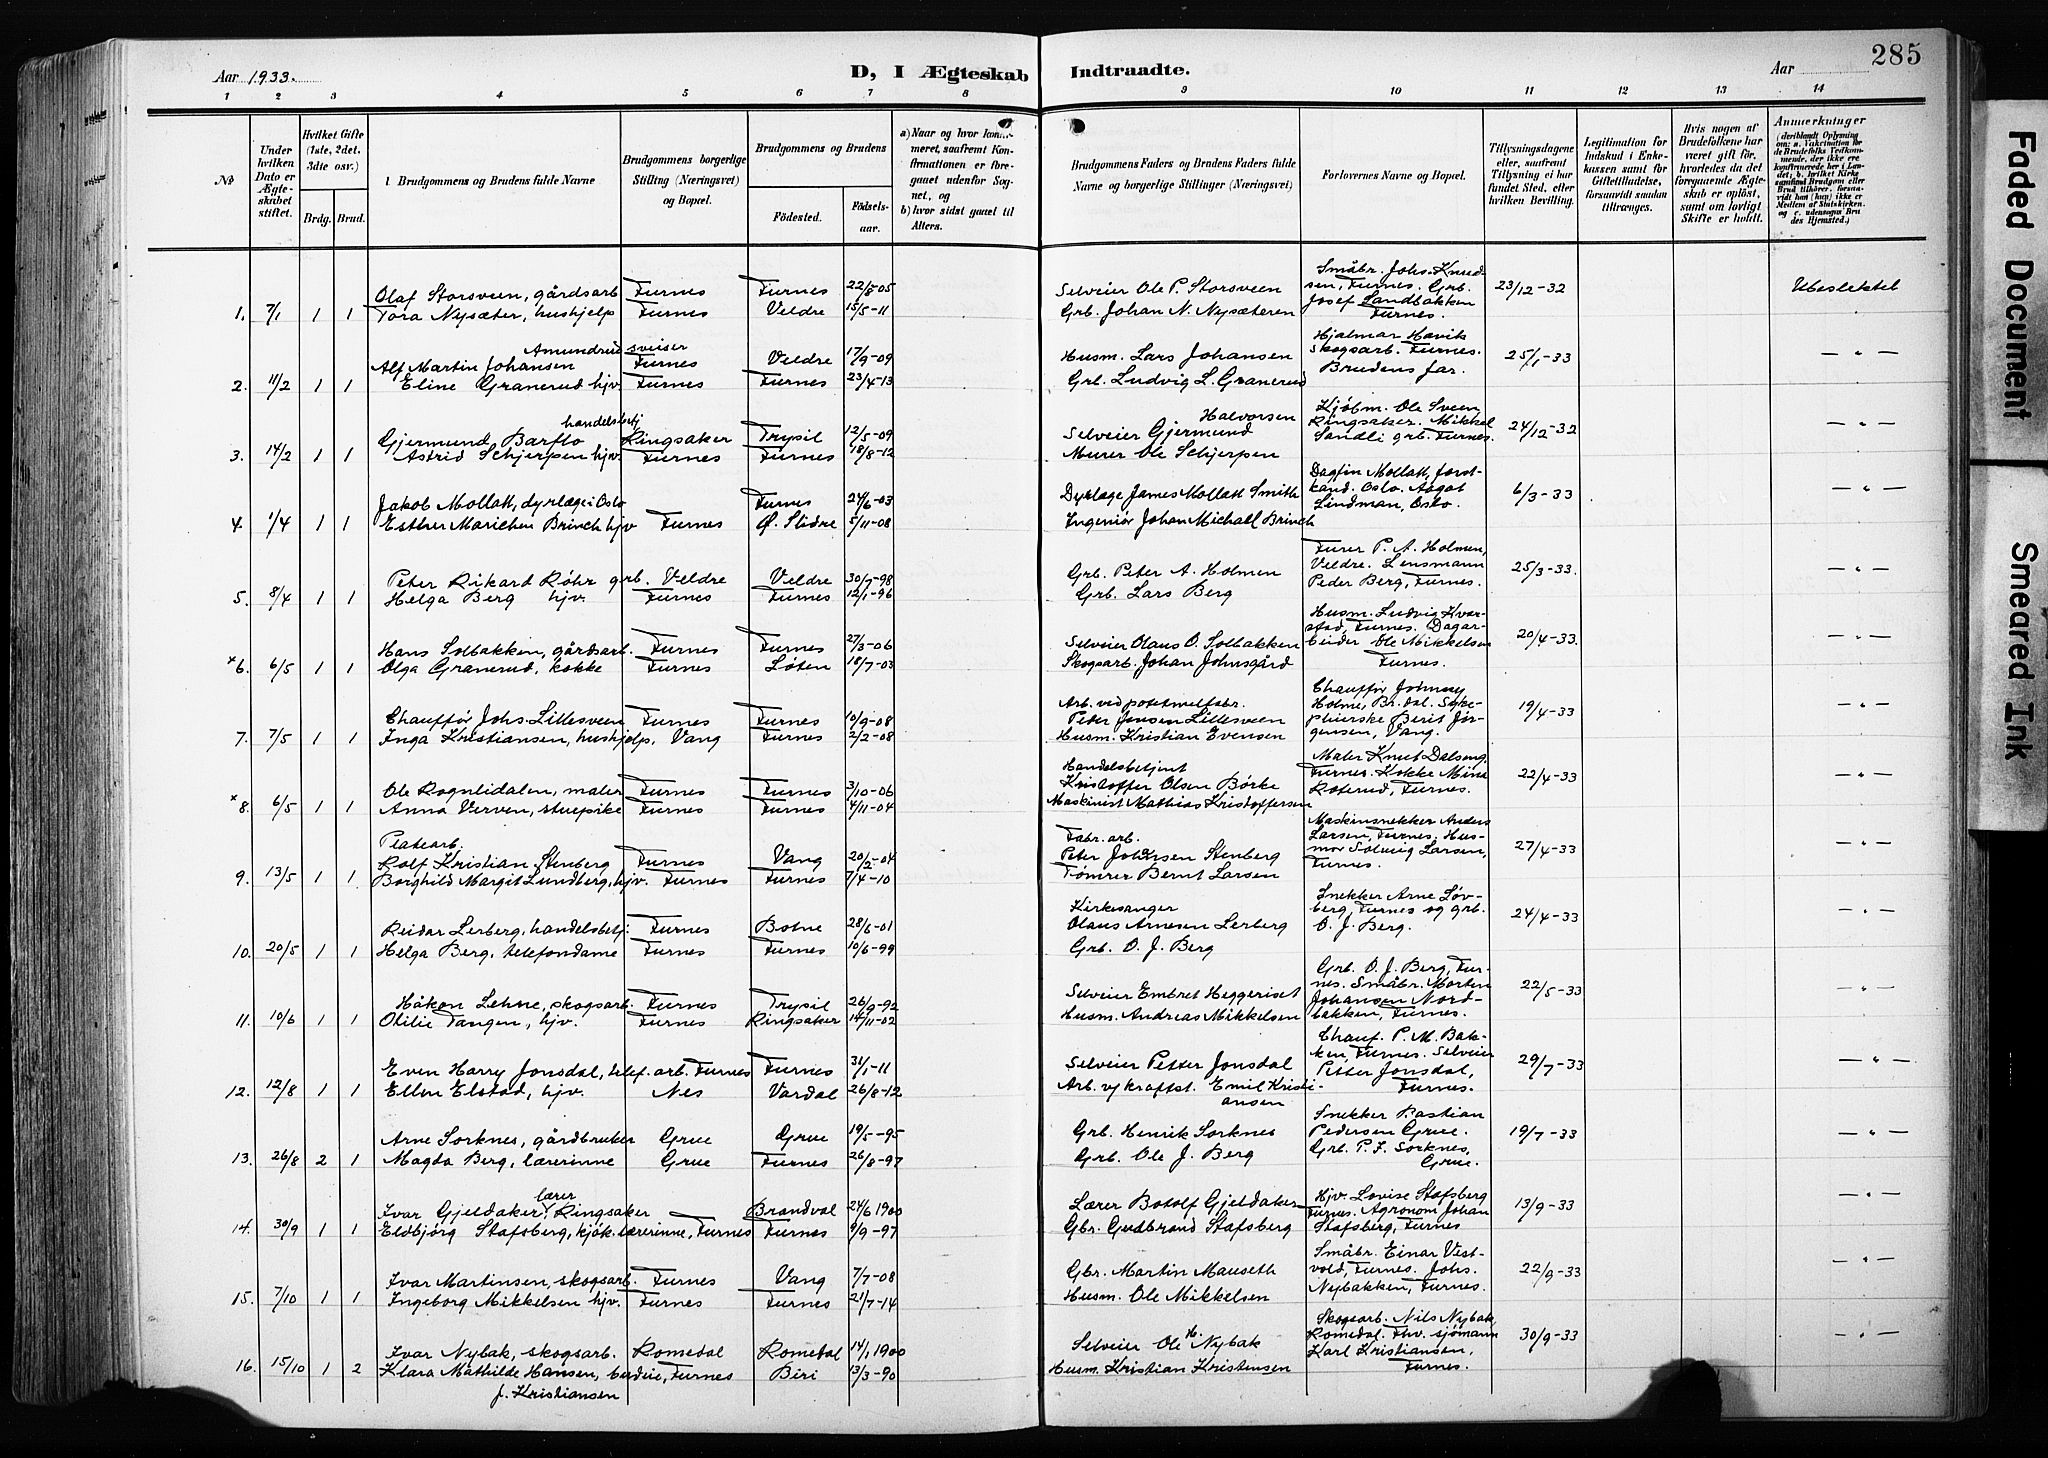 285
Aar 1933.
D, I Ægteskab Indtraadte.
Aar
1 2 3 4 5 6 7 8 9 10 11 12 13 14
No
Under hvilken Dato er Ægteskabet stiftet.
Hvilket Gifte (1ste, 2det, 3die osv.)
Brdg. Brud.
Brudgommens og Brudens fulde Navne
Brudgommens borgerlige Stilling (Næringsvei) og Bopæl.
Brudgommens og Brudens
Födested. Födselsaar.
a) Naar og hvor konfirmeret, saafremt Konfirmationen er foregaaet udenfor Sognet, og
b) hvor sidst gaaet til Alters.
Brudgommens Faders og Brudens Faders fulde Navne og borgerlige Stillinger (Næringsvei)
Forlovernes Navne og Bopæl.
Tillysningsdagene eller, saafremt Tillysning ei har fundet Sted, efter hvilken Bevilling.
Legitimation for Indskud i Enkekassen samt for Giftetilladelse, forsaavidt saadan tiltrænges.
Hvis nogen af Brudefolkene har været gift för, hvorledes da det foregaaende Ægteskab er oplöst, samt om lovligt Skifte er holdt.
Anmerkninger
1. 7/1 1 1 Olaf Storsveen, gårdsarb. Furnes Furnes 22/8-05 Selveier Ole P. Storsveen Småbr. Johs. Knudsen, Furnes. Grb. Josef Landbakken Furnes. 23/12-32 Ubeslektet
Tora Nysæter, hushjelp Furnes Veldre 15/5-11 Grb. Johan N. Nysæteren
2. 11/2 1 1 Alf Martin Johansen Amundrud sveiser Furnes Veldre 17/9-09 Husm. Lars Johansen Hjalmar Havik skogsarb. Furnes. Brudens far. 25/1-33 — " —
Eline Granerud hjv. Furnes Furnes 23/4-13 Grb. Ludvig L. Granerud
3. 14/2 1 1 Gjermund Barflo handelsbetj Ringsaker Trysil 12/5-09 Selveier Gjermund Halvorsen Kjøbm. Ole Sveen Ringsaker. Mikkel Sandli grb. Furnes. 24/12-32 — " —
Astrid Schjerpen hjv. Furnes Furnes 18/8-12 Murer Ole Schjerpen
4. 1/4 1 1 Jakob Mollatt, dyrlæge i Oslo Furnes 24/6-03 Dyrlæge James Mollatt Smith Dagfin Mollatt, forstkand. Oslo. Aagot Lindman, Oslo. 6/3-33 — " —
Esther Marichen Brinch hjv Furnes Ø. Slidre 5/11-08 Ingeniør Johan Michall Brinch
5. 8/4 1 1 Peter Rikard Røhr grb. Veldre Veldre 30/7-98 Grb. Peter A. Holmen Furer P. A. Holmen, Veldre. Lensmann Peder Berg, Furnes. 25/3-33. — " —
Helga Berg hjv. Furnes Furnes 12/1-96 Grb. Lars Berg
×6. 6/5 1 1 Hans Solbakken, gårdsarb. Furnes Furnes 27/3-06 Selveier Olaus O. Solbakken Husm. Ludvig Kvarstad, Furnes. Dagarbeider Ole Mikkelsen Furnes. 20/4-33. — " —
Olga Granerud, kokke Furnes Løten 18/7-03 Skogsarb. Johan Johnsgård
7. 7/5 1 1 Chauffør Johs. Lillesveen Furnes Furnes 10/9-08 Arb. ved potetmelfabr. Peder Jensen Lillesveen Chauffør Johnny Holme, Br.dal. Sykepleierske Berit Jørgensen, Vang. 19/4-33 — " —
Inga Kristiansen, hushjelp, Vang Furnes 2/2-08 Husm. Kristian Evensen
×8. 6/5 1 1 Ole Rognlidalen, maler Furnes Furnes 3/10-06 Handelsbetjent Kristoffer Olsen Børke Maler Knut Delseng, Furnes. Kokke Mina Roterud, Furnes. 22/4-33 — " —
Anna Verven, stuepike Furnes Furnes 4/11-04 Maskinist Mathias Kristoffersen
9. 13/5 1 1 Platearb. Rolf Kristian Stenberg Furnes Vang 20/2-04 Fabr. arb. Peter Johansen Stenberg Maskinsnekker Anders Larsen, Furnes. Husmor Solveig Larsen, Furnes. 27/4-33 — " —
Borghild Margit Lundberg, hjv. Furnes Furnes 7/4-10 Tømrer Bernt Larsen
10. 20/5 1 1 Reidar Lerberg, handelsbetj. Furnes Botne 28/6-01 Kirkesanger Olaus Arnesen Lerberg Snekker Arne Løvberg, Furnes og grb. O. J. Berg. 24/4-33 — " —
Helga Berg, telefondame Furnes Furnes 10/6-99 Grb. O. J. Berg
11. 10/6 1 1 Håkon Lehne, skogsarb. Furnes Trysil 26/9-92 Selveier Embret Heggeriset Grb. O. J. Berg, Furnes. Småbr. Morten Johansen Nordbakken, Furnes. 22/5-33 — " —
Otilie Tangen, hjv. Furnes Ringsaker 14/11-02 Husm. Andreas Mikkelsen
12. 12/8 1 1 Even Harry Jonsdal, telef. arb. Furnes Furnes 31/1-11 Selveier Petter Jonsdal Chauf. P. M. Bakken, Furnes. Selveier Petter Jonsdal, Furnes. 29/7-33 — " —
Ellen Elstad, hjv. Nes Vardal 26/8-12 Arb. v/ kraftst. Emil Kristiansen
13. 26/8 2 1 Arne Sorknes, gårdbruker Grue Grue 19/5-95 Grb. Henrik Sorknes Snekker Bastian Pedersen Grue. Grb. P. F. Sorknes, Grue. 19/7-33 — " —
Magda Berg, lærerinne Grue Furnes 26/8-97 Grb. Ole J. Berg
14. 30/9 1 1 Ivar Gjeldaker, lærer Ringsaker Brandval 24/6 1900 Lærer Botolf Gjeldaker Hjv. Lovise Stafsberg Furnes. Agronom Johan Stafsberg, Furnes 13/9-33 — " —
Eldbjørg Stafsberg, kjøk. lærerinne, Furnes Furnes 9/9-97 Gbr. Gudbrand Stafsberg
15. 7/10 1 1 Ivar Martinsen, skogsarb. Furnes Vang 7/7-08 Gbr. Martin Mauseth Småbr. Einar Vestvold, Furnes. Johs. Nybakken, Furnes. 22/9-33 — " —
Ingeborg Mikkelsen hjv. Furnes Furnes 21/7-14 Husm. Ole Mikkelsen
16. 15/10 1 2 Ivar Nybak, skogsarb. Romedal Romedal 14/1 1900 Selveier Ole H. Nybak Skogsarb. Nils Nybak, Romedal. Fhv. sjømann Karl Kristiansen, Furnes. 30/9-33 — " —
Klara Mathilde Hansen, budeie, Furnes Biri 13/3-90 Husm. Kristian Kristensen
f. Kristiansen
Faded Document
Smeared Ink